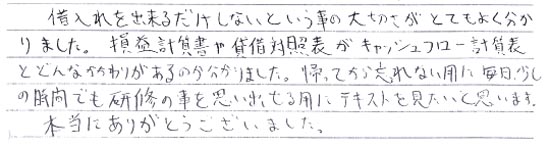 借入れを出来るだけしないという事の大切さがとてもよく分か
りました。損益計算書や貸借対照表がキャッシュフロー計算表
とどんなかかわりがあるのか分かりました。帰ってから忘れない用に毎日少し
の時間でも研修の事を思い出せる用にテキストを見たいと思います。
本当にありがとうございました。